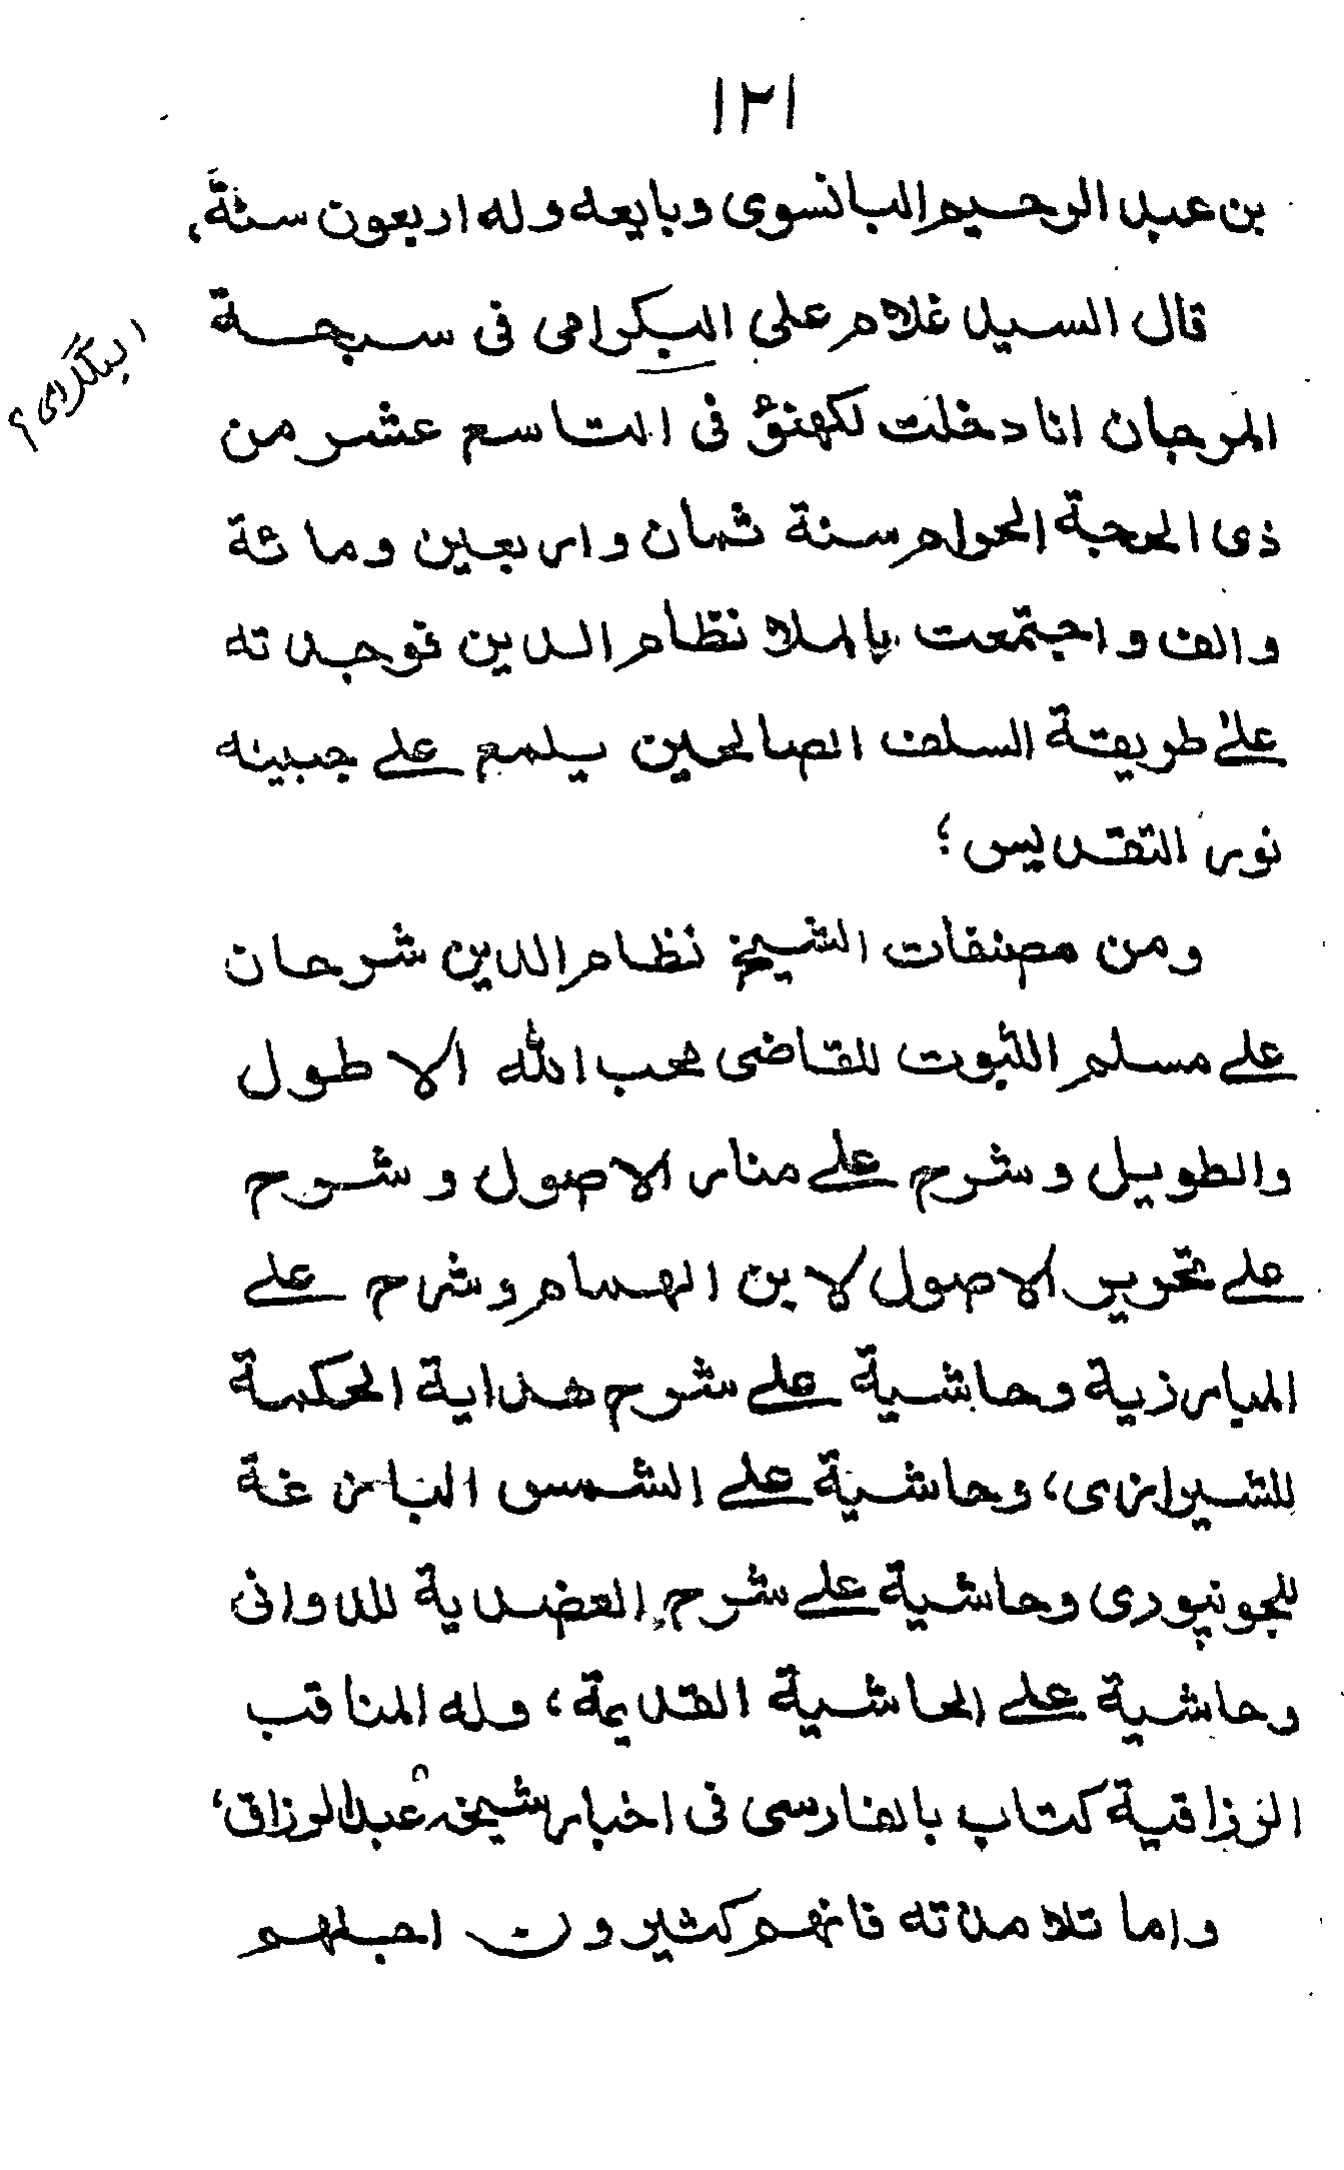 ١٢١
بن عبد الرحيم البانسوى وبايعه وله اربعون سنةً،
قال السيد غلام على البكرامى فى سبحة
المرجان انا دخلت لكهنؤ فى التاسع عشر من
ذى الحجة الحرام سنة ثمان واربعين ومائة
والف واجتمعت بالملا نظام الدين فوجدته
علىٰ طريقة السلف الصالحين يلمع على جبينه
نور التقديس؛
ومن مصنفات الشيخ نظام الدين شرحان
على مسلم الثبوت للقاضى محب الله الاطول
والطويل وشرح على منار الاصول وشرح
على تحرير الاصول لابن الهمام وشرح على
المبارزية وحاشية على شرح هداية الحكمة
للشيرازى، وحاشية على الشمس البازغة
للجونپورى وحاشية على شرح العضدية للدوانى
وحاشية على الحاشية القديمة، وله المناقب
الرزاقية كتاب بالفارسى فى اخبار شيخه عبدالرزاق،
واما تلامذته فانهم كثيرون اجلهم
البلگرامى؟